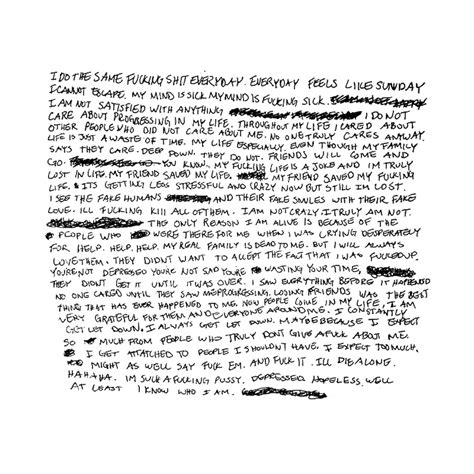 I DO THE SAME FUCKING SHIT EVERYDAY. EVERYDAY FEELS LIKE SUNDAY
I CANNOT ESCAPE. MY MIND IS SICK MY MIND IS FUCKING SICK.
I AM NOT SATISFIED WITH ANYTHING I DO NOT
CARE ABOUT PROGRESSING IN MY LIFE. THROUGHOUT MY LIFE I CARED ABOUT
OTHER PEOPLE WHO DID NOT CARE ABOUT ME. NO ONE TRULY CARES ANYWAY.
LIFE IS JUST A WASTE OF TIME. MY LIFE ESPECIALLY. EVEN THOUGH MY FAMILY
SAYS THEY CARE. DEEP DOWN. THEY DO NOT. FRIENDS WILL COME AND
GO. YOU KNOW. MY FUCKING LIFE IS A JOKE AND IM TRULY
LOST IN LIFE. MY FRIEND SAVED MY LIFE. MY FRIEND SAVED MY FUCKING
LIFE. & ITS GETTING LESS STRESSFUL AND CRAZY NOW BUT STILL IM LOST.
I SEE THE FAKE HUMANS AND THEIR FAKE SMILES WITH THEIR FAKE
LOVE. ILL FUCKING KILL ALL OF THEM. I AM NOT CRAZY. I TRULY AM NOT.
THE ONLY REASON I AM ALIVE IS BECAUSE OF THE
PEOPLE WHO WERE THERE FOR ME WHEN I WAS CRYING DESPERATELY
FOR HELP. HELP. HELP. MY REAL FAMILY IS DEAD TO ME. BUT I WILL ALWAYS
LOVE THEM. THEY DIDNT WANT TO ACCEPT THE FACT THAT I WAS FUCKED UP.
YOURE NOT DEPRESSED YOURE NOT SAD YOURE WASTING YOUR TIME,
THEY DIDNT GET IT UNTIL IT WAS OVER. I SAW EVERYTHING BEFORE IT HAPPENED
NO ONE CARED UNTIL THEY SAW ME PROGRESSING. LOSING FRIENDS WAS THE BEST
THING THAT HAS EVER HAPPENED TO ME. NOW PEOPLE COME IN MY LIFE, I AM
VERY GRATEFUL FOR THEM AND EVERYONE AROUND ME. I CONSTANTLY
GET LET DOWN. I ALWAYS GET LET DOWN. MAYBE BECAUSE I EXPECT
SO MUCH FROM PEOPLE WHO TRULY DONT GIVE A FUCK ABOUT ME.
I GET ATTATCHED TO PEOPLE I SHOULDN'T HAVE, I EXPECT TOO MUCH,
MIGHT AS WELL SAY FUCK EM. AND FUCK IT. ILL DIE ALONE.
HAHAHA. IM SUCH A FUCKING PUSSY. DEPRESSED. HOPELESS. WELL
AT LEAST I KNOW WHO I AM.